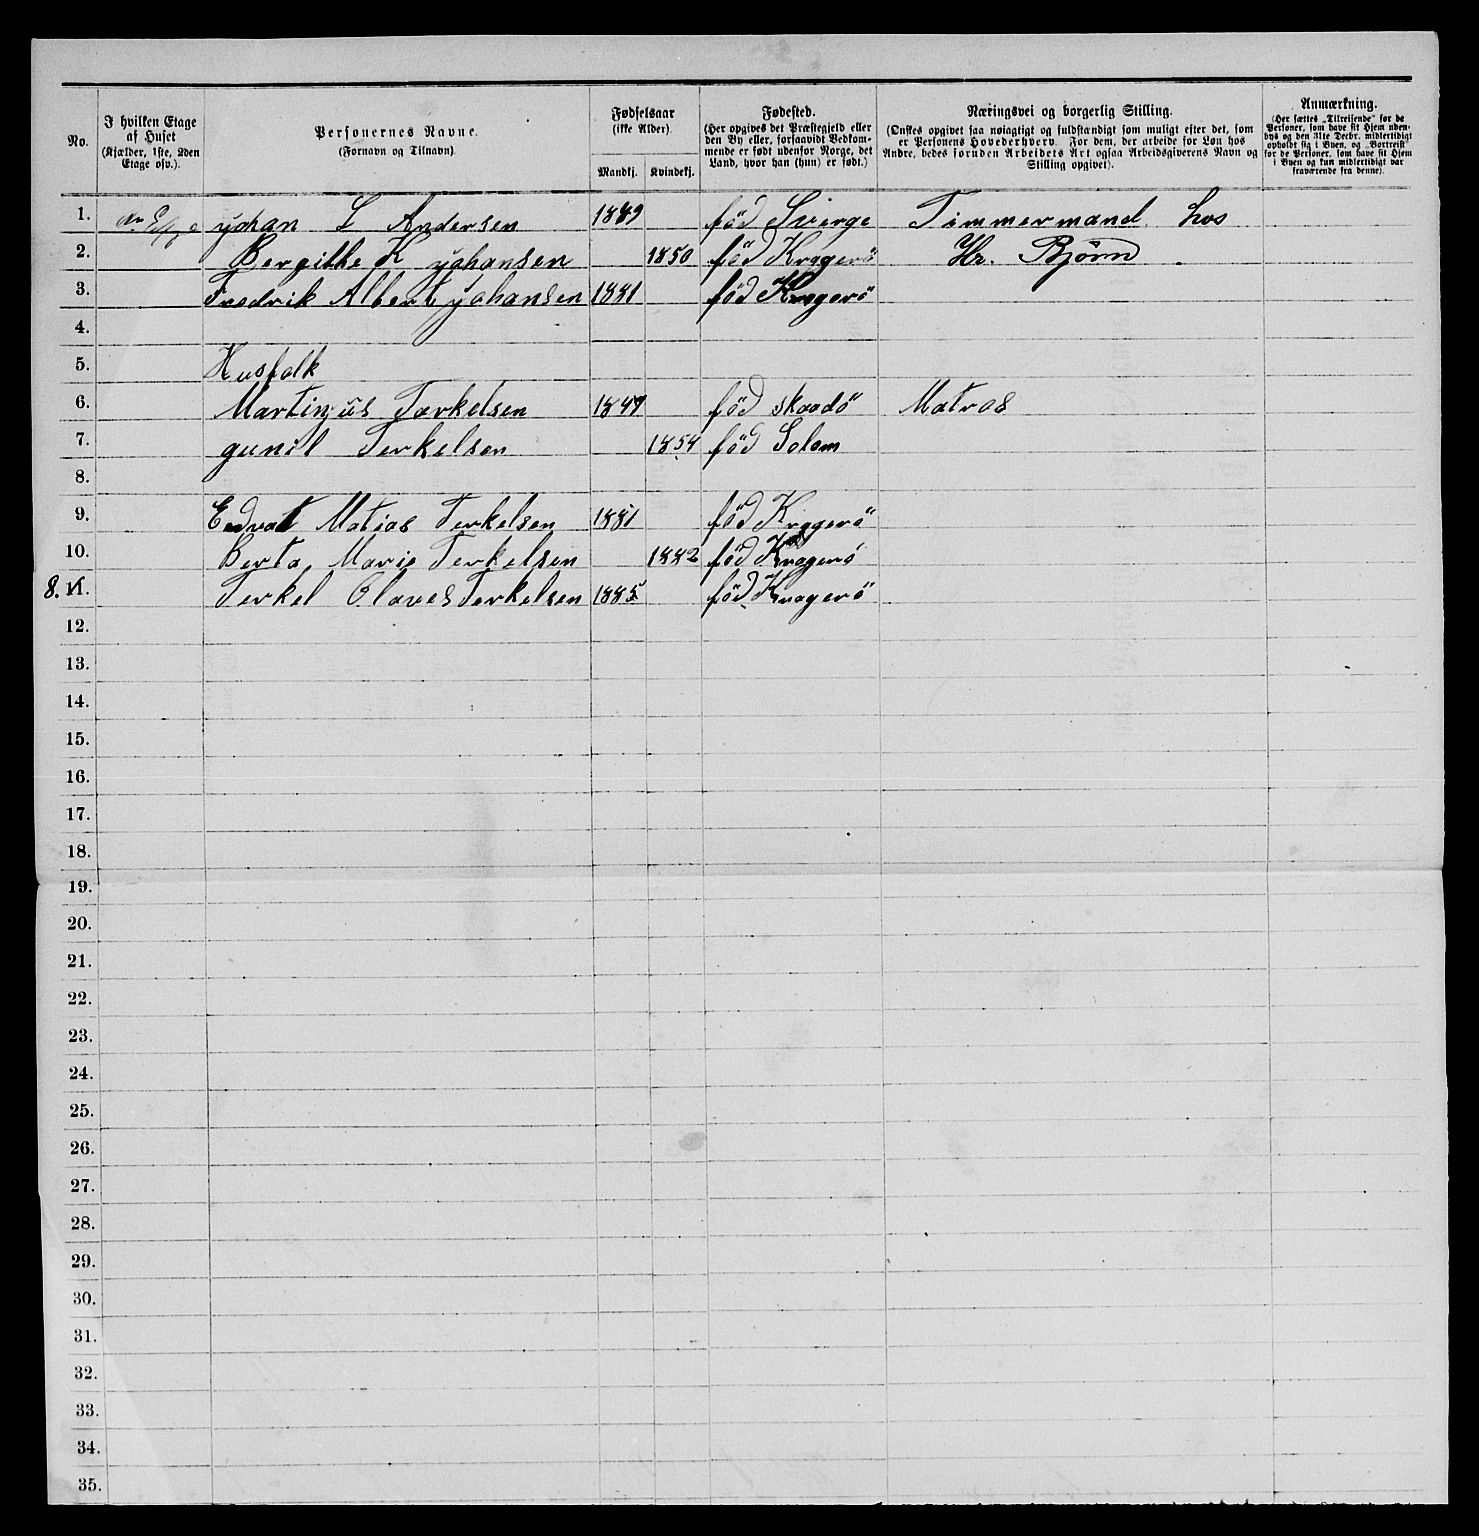 No.
I hvilken Etage af Huset (Kjælder, 1ste, 2den Etage osv.).
Personernes Navne. (Fornavn og Tilnavn).
Fødselsaar (ikke Alder).
Mandkj. Kvindekj.
Fødested. (Her opgives det Præstegjeld eller den By eller, forsaavidt Vedkommende er født udenfor Norge, det Land, hvor han (hun) er født.)
Næringsvei og borgerlig Stilling. (Ønskes opgivet saa nøiagtigt og fuldstændigt som muligt efter det, som er Personens Hovederhverv. For dem, der arbeide for Løn hos Andre, bedes foruden Arbeidets Art ogsaa Arbeidsgiverens Navn og Stilling opgivet).
Anmærkning. (Her sættes „Tilreisende“ for de Personer, som have sit Hjem udenbys og den 31te Decbr. midlertidigt opholdt sig i Byen, og „Bortreist“ for de Personer, som have sit Hjem i Byen og kun midlertidigt var fraværende fra denne).
1. yohan L Andersen fød Sverge Timmermand hos
2. Bergithe K yohansen 1850 föd Kragerö Hr. Bjørn
3. Fredrik Albert yohansen 1881 föd Kragerö
4.
5. Husfolk
6. Martinjus Tærkelsen föd skaadö Matros
7. gunil Terkelsen 1854 föd Solom
8.
9. Edvat Matias Terkelsen 1881 föd Kragerö
10. Berta Marie Terkelsen 1882 föd Kragerö
8. 11. Terkel Olaves Terkelsen 1885 föd Kragerö
12.
13.
14.
15.
16.
17.
18.
19.
20.
21.
22.
23.
24.
25.
26.
27.
28.
29.
30.
31.
32.
33.
34.
35.